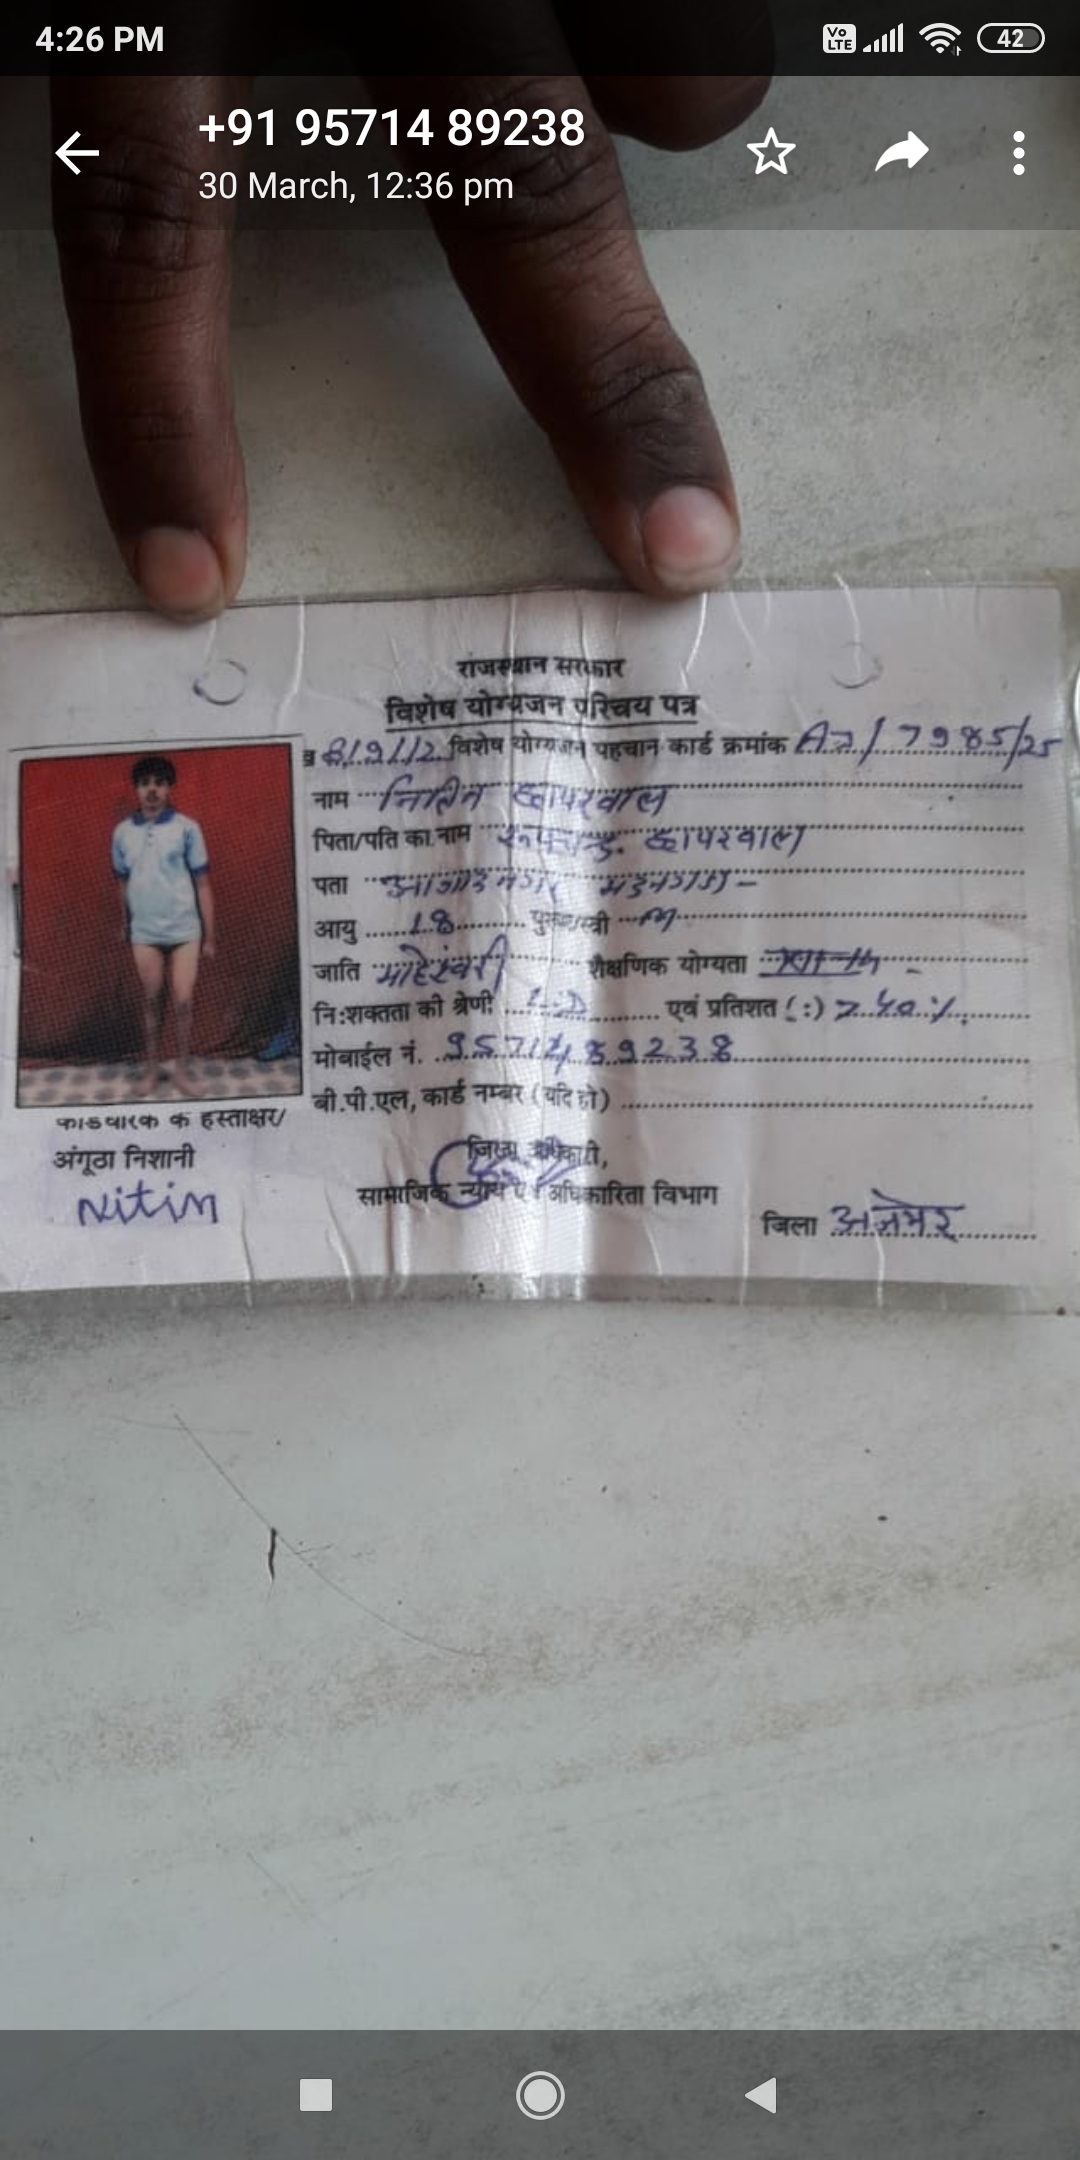 4:26 PM
Vo LTE 42
+91 95714 89238
30 March, 12:36 pm
राजस्थान सरकार
विशेष योग्यजन परिचय पत्र
विशेष योग्यजन पहचान कार्ड क्रमांक AJ/7985/25
नाम नितिन छापरवाल
पिता/पति का नाम रूपचन्द छापरवाल
पता आजाद नगर मदनगंज
आयु 18 पुरुष/स्त्री M
जाति माहेश्वरी शैक्षणिक योग्यता
नि:शक्तता की श्रेणी एवं प्रतिशत (:) 40%
मोबाईल नं. 9571489238
बी.पी.एल, कार्ड नम्बर (यदि हो)
कार्डधारक के हस्ताक्षर/
अंगूठा निशानी
Nitin
जिला अधिकारी,
सामाजिक न्याय एवं अधिकारिता विभाग
जिला अजमेर